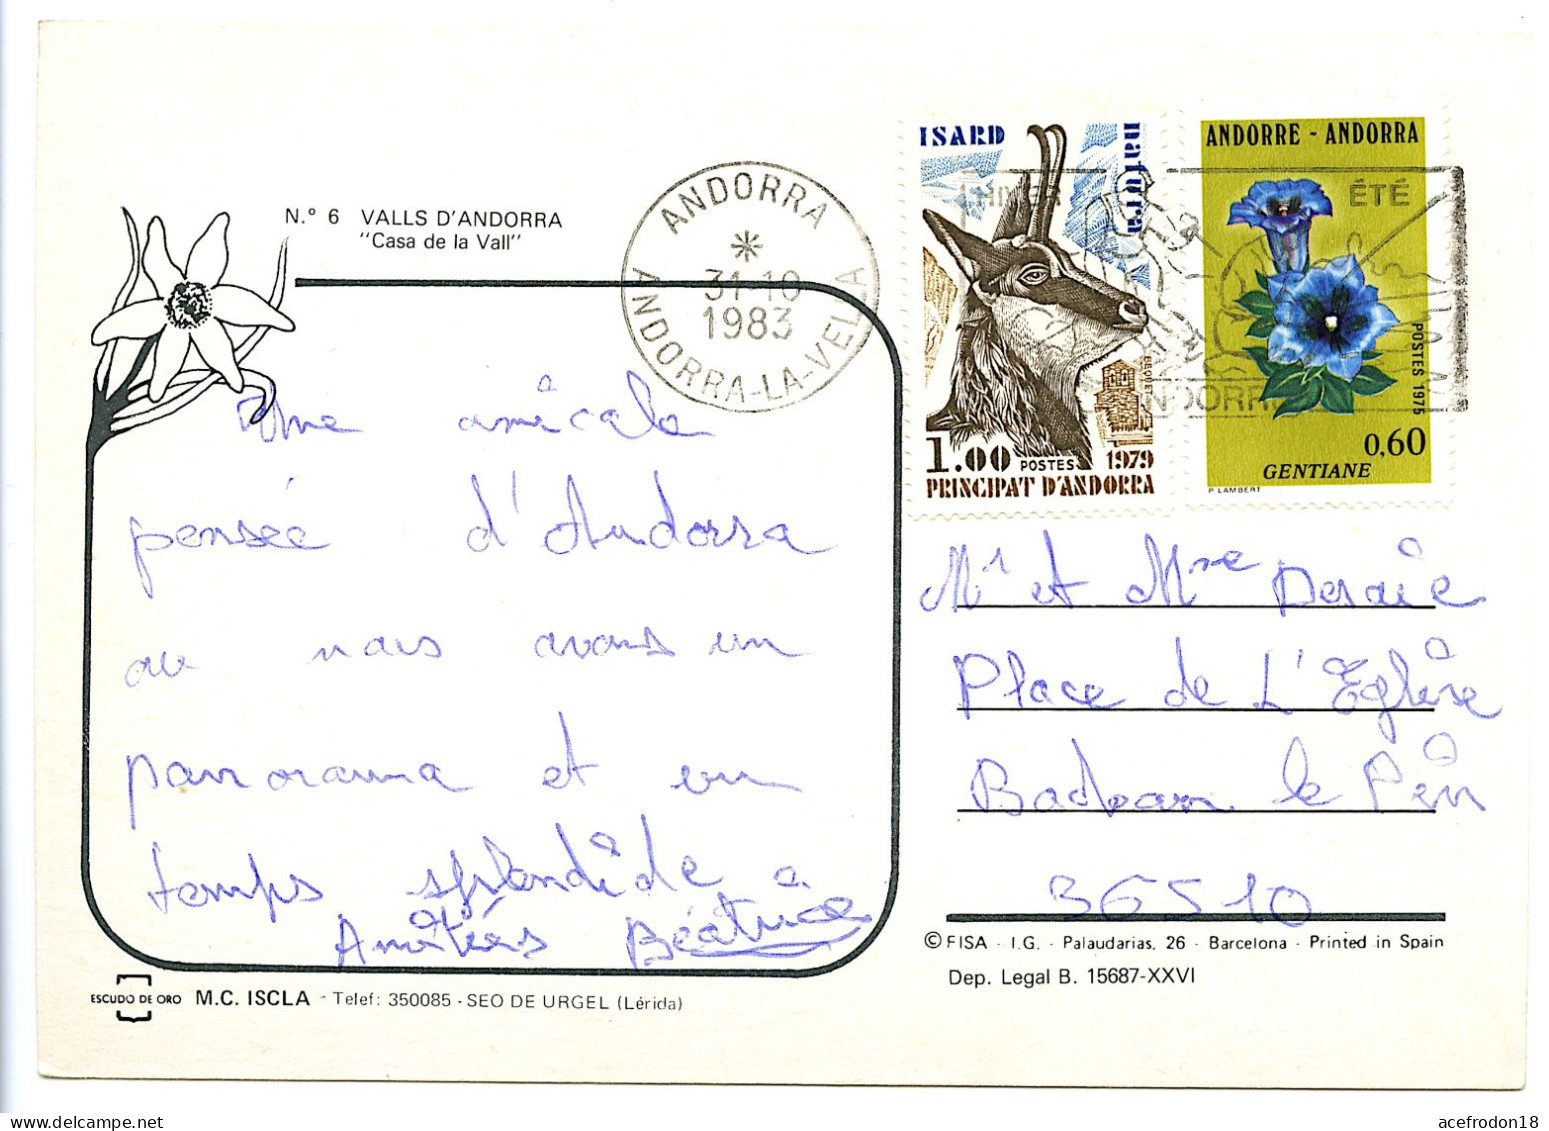 N.º 6 VALLS D'ANDORRA
"Casa de la Vall"
ANDORRA
31-10
1983
ANDORRA-LA-VELLA
ISARD
natura
1.00 POSTES 1979
PRINCIPAT D'ANDORRA
ANDORRE - ANDORRA
HIVER
ÉTÉ
ANDORRE
POSTES 1975
0,60
GENTIANE
P. LAMBERT
Une amicale
pensée d'Andorra
ou nous avons un
panorama et un
temps splendide
Amitiés Béatrice
Mr et Mme
Place de L'Eglise
le Pin
36510
© FISA - I.G. - Palaudarias, 26 - Barcelona - Printed in Spain
Dep. Legal B. 15687-XXVI
ESCUDO DE ORO M.C. ISCLA - Telef: 350085 - SEO DE URGEL (Lérida)
acefrodon18